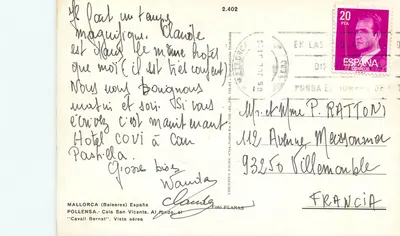 Il fait un temps
magnifique. Claude
est dans le même hôtel
que moi (il est très content)
Nous nous baignons
matin et soir. Si vous
écrivez c'est maintenant
Hotel COVI à Can
Pastilla.
Grosses bises
Wanda
Claude
MALLORCA (Baleares) España
POLLENSA.- Cala San Vicente. Al fondo, el
"Cavall Bernat". Vista aérea
2.402
20
PTA
ESPAÑA
CORREOS
EN LAS
Mr et Mme P. RATTONI
112 Avenue
93250 Villemomble
FRANCIA